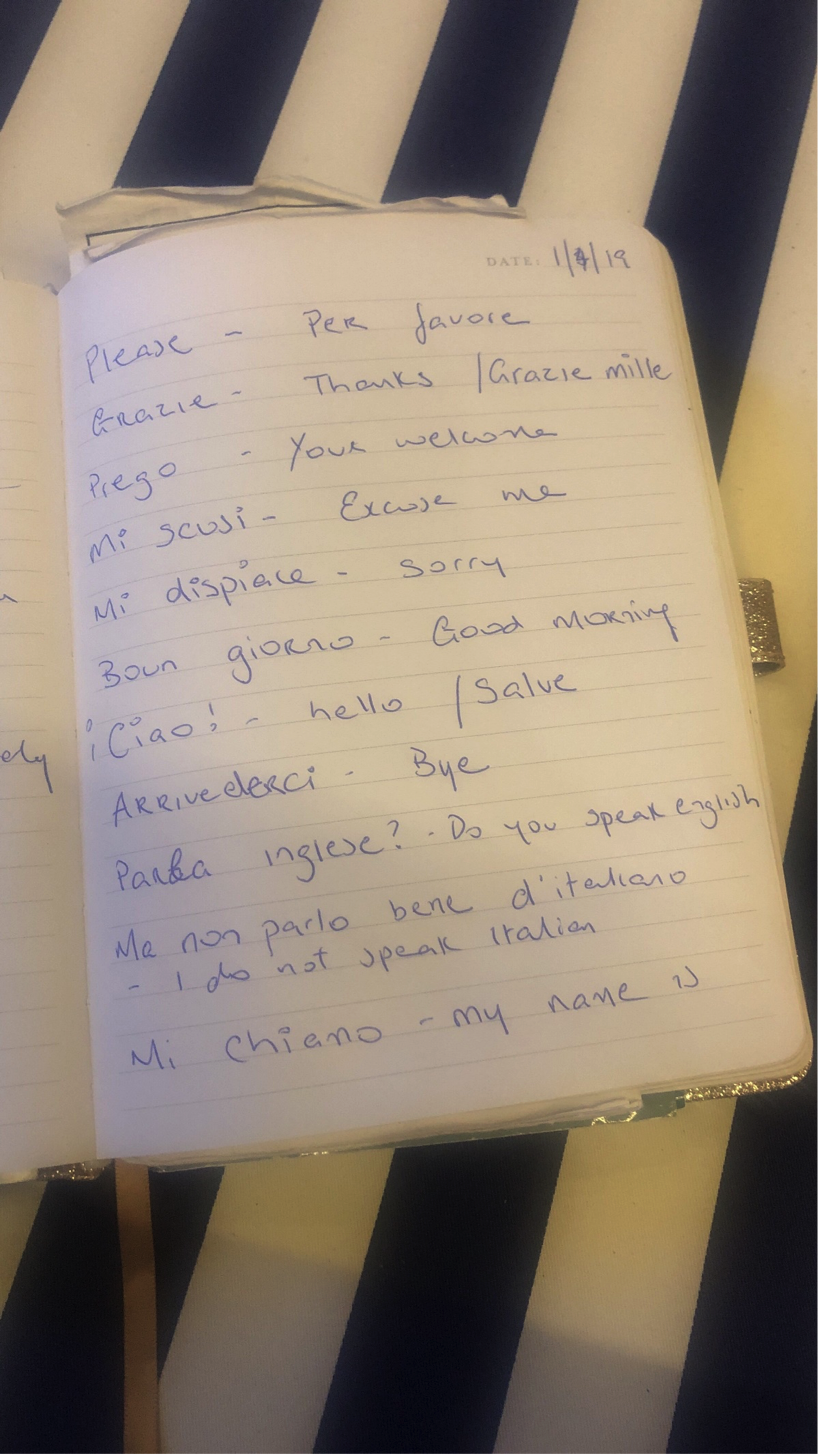 DATE: 1/4/19
Please - Per favore
Grazie - Thanks / Grazie mille
Prego - Your welcome
Mi scusi - Excuse me
Mi dispiace - Sorry
Boun giorno - Good Morning
¡Ciao! - hello / Salve
Arrivederci - Bye
Parla inglese? - Do you speak english
Ma non parlo bene d'italiano
- I do not speak Italian
Mi chiamo - my name is
ely